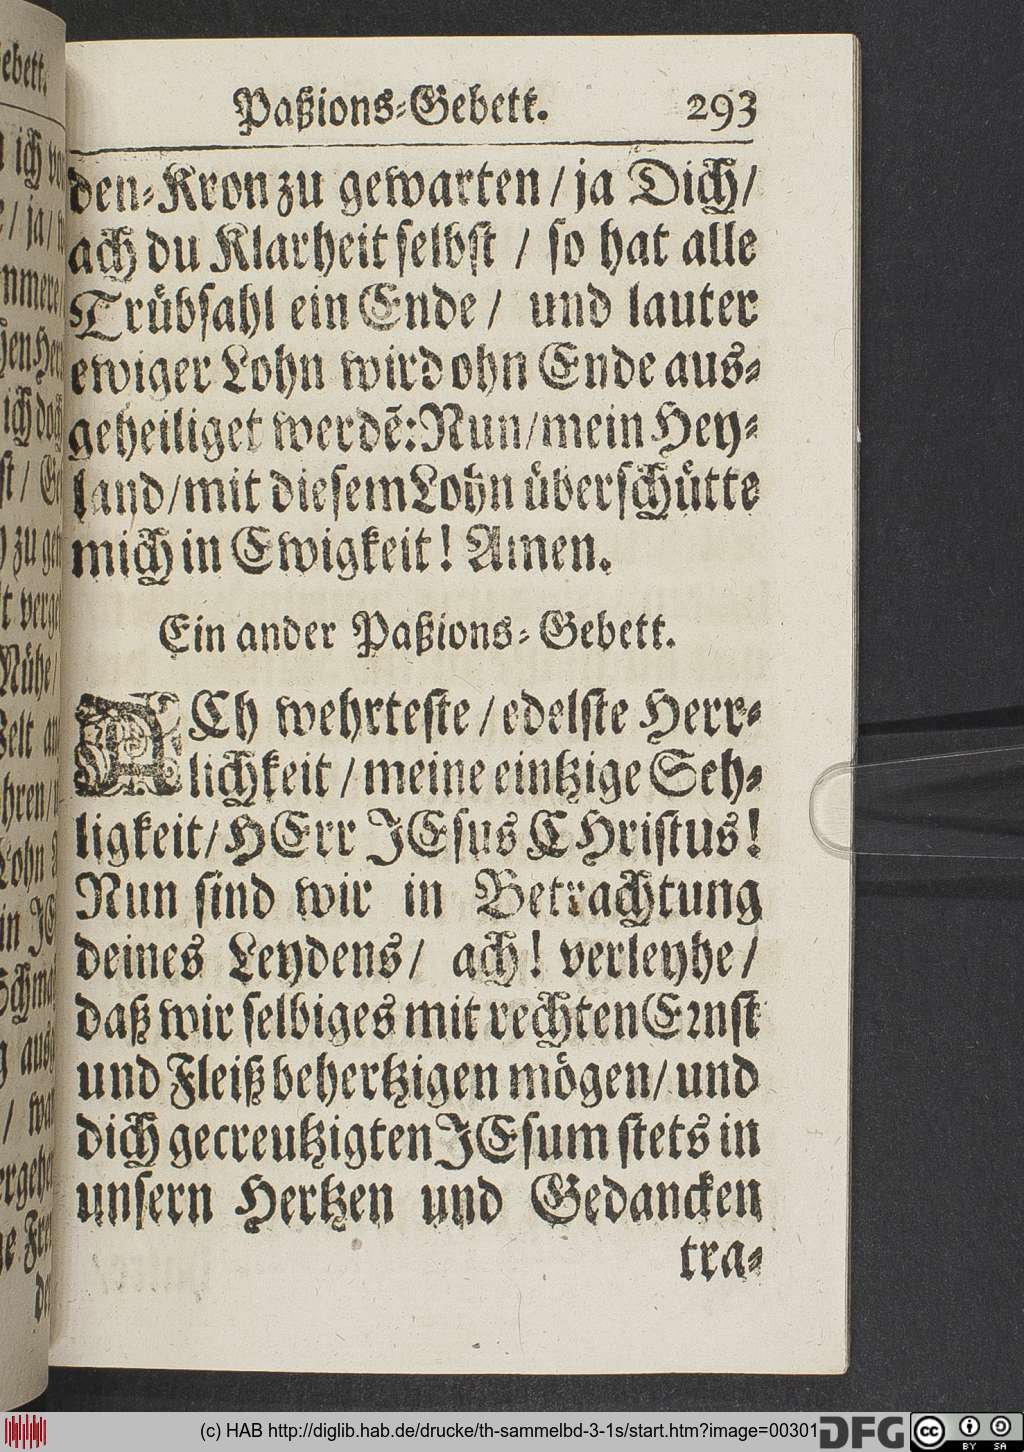 Paßions-Gebett. 293
den-Kron zu gewarten / ja Dich /
ach du Klarheit selbst / so hat alle
Trübsahl ein Ende / und lauter
ewiger Lohn wird ohn Ende aus-
geheiliget werdẽ: Nun / mein Hey-
land / mit diesem Lohn überschütte
mich in Ewigkeit! Amen.
Ein ander Paßions-Gebett.
ACh wehrteste / edelste Herr-
lichkeit / meine eintzige Seh-
ligkeit / HErr JEsus CHristus!
Nun sind wir in Betrachtung
deines Leydens / ach! verleyhe /
daß wir selbiges mit rechten Ernst
und Fleiß behertzigen mögen / und
dich gecreutzigten JEsum stets in
unsern Hertzen und Gedancken
tra-
(c) HAB http://diglib.hab.de/drucke/th-sammelbd-3-1s/start.htm?image=00301
DFG
cc BY SA